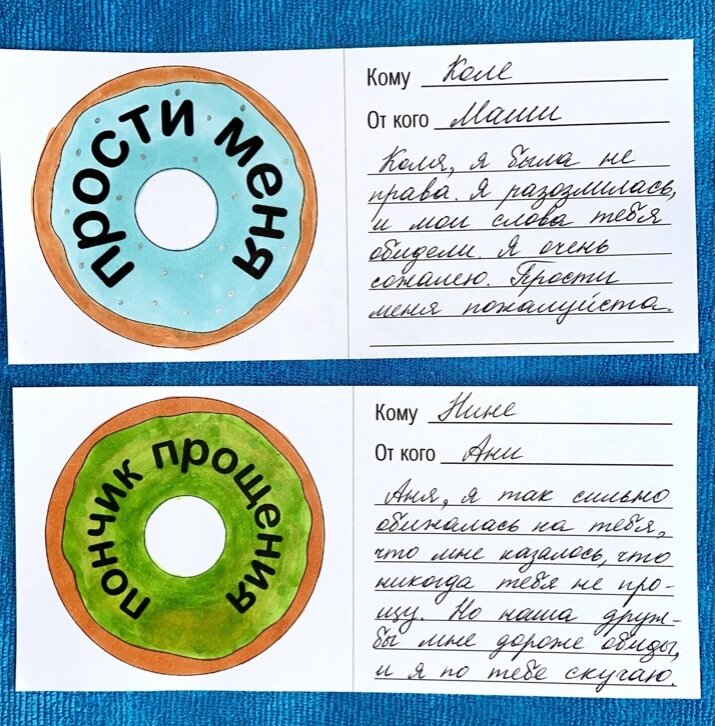 прости меня
Кому Коле
От кого Маши
Коля, я была не
права. Я разозлилась,
и мои слова тебя
обидели. Я очень
сожалею. Прости
меня пожалуйста.
пончик прощения
Кому Нине
От кого Ани
Аня, я так сильно
обижалась на тебя,
что мне казалось, что
никогда тебя не про-
щу. Но наша друж-
бы мне дороже обиды,
и я по тебе скучаю.